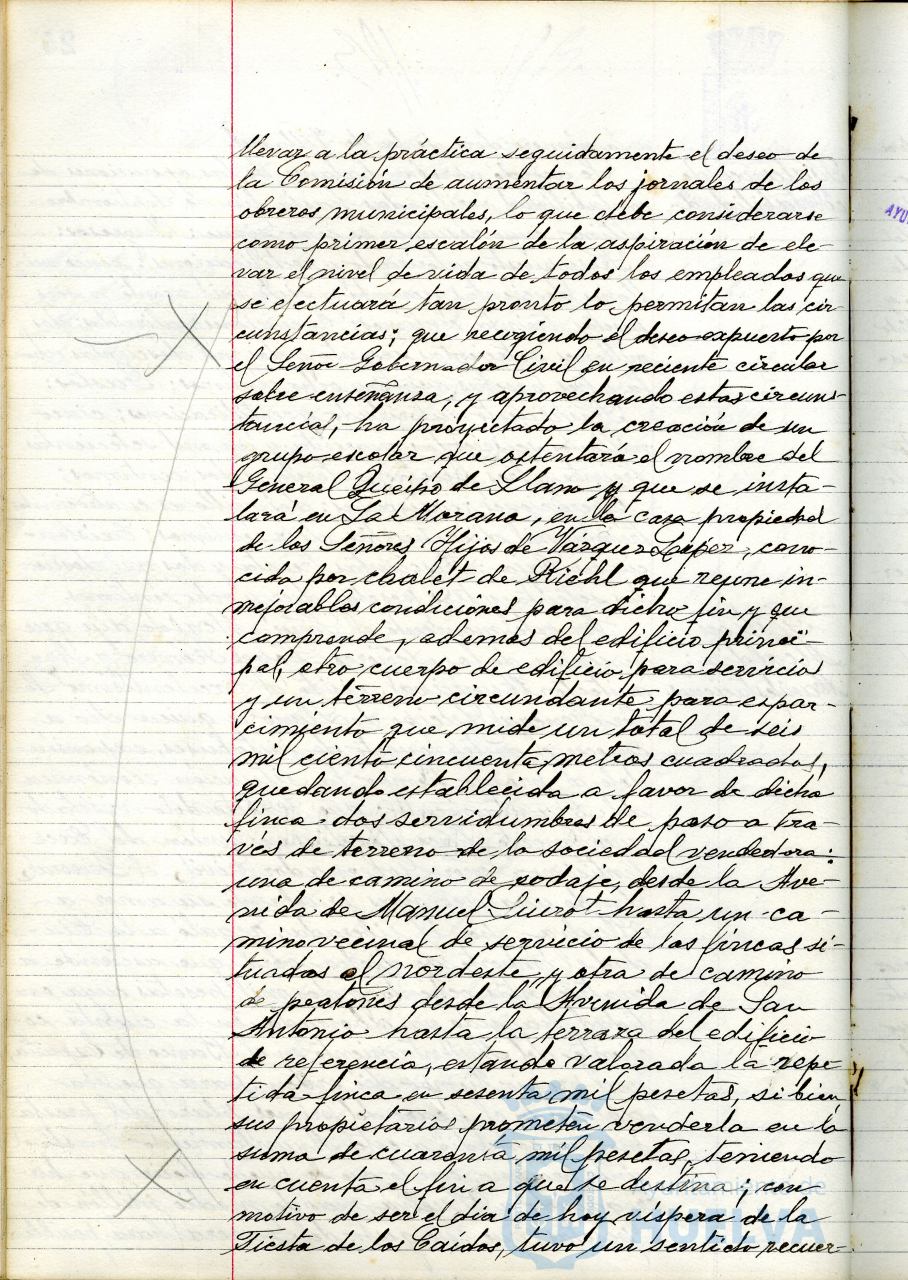 llevar a la práctica seguidamente el deseo de
la Comisión de aumentar los jornales de los
obreros municipales, lo que debe considerarse
como primer escalón de la aspiración de ele-
var el nivel de vida de todos los empleados que
se efectuará tan pronto lo permitan las cir-
cunstancias; que recogiendo el deseo expuesto por
el Señor Gobernador Civil en reciente circular
sobre enseñanza, y aprovechando estas circuns-
tancias, ha proyectado la creación de un
grupo escolar que ostentará el nombre del
General Queipo de Llano y que se insta-
lará en La Morana, en la casa propiedad
de los Señores Hijos de Vázquez López, cono-
cida por chalet de Riehl que reune in-
mejorables condiciones para dicho fin y que
comprende, ademas del edificio princi-
pal, otro cuerpo de edificio para servicios
y un terreno circundante para espar-
cimiento que mide un total de seis
mil ciento cincuenta metros cuadrados,
quedando establecida a favor de dicha
finca dos servidumbres de paso a tra-
vés de terreno de la sociedad vendedora:
una de camino de rodaje, desde la Ave-
nida de Manuel Siurot hasta un ca-
mino vecinal de servicio de las fincas si-
tuadas al nordeste, y otra de camino
de peatones desde la Avenida de San
Antonio hasta la terraza del edificio
de referencia, estando valorada la repe-
tida finca en sesenta mil pesetas, si bien
sus propietarios prometen venderla en la
suma de cuarenta mil pesetas, teniendo
en cuenta el fin a que se destina; con
motivo de ser el dia de hoy vispera de la
Fiesta de los Caidos, tuvo un sentido recuer-
AYU
Ayuntamiento de
HUELVA